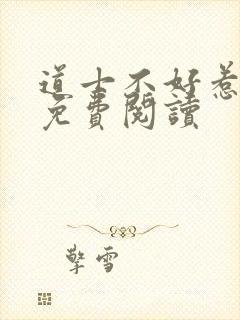 道士不好惹
免費閱讀
擎雪